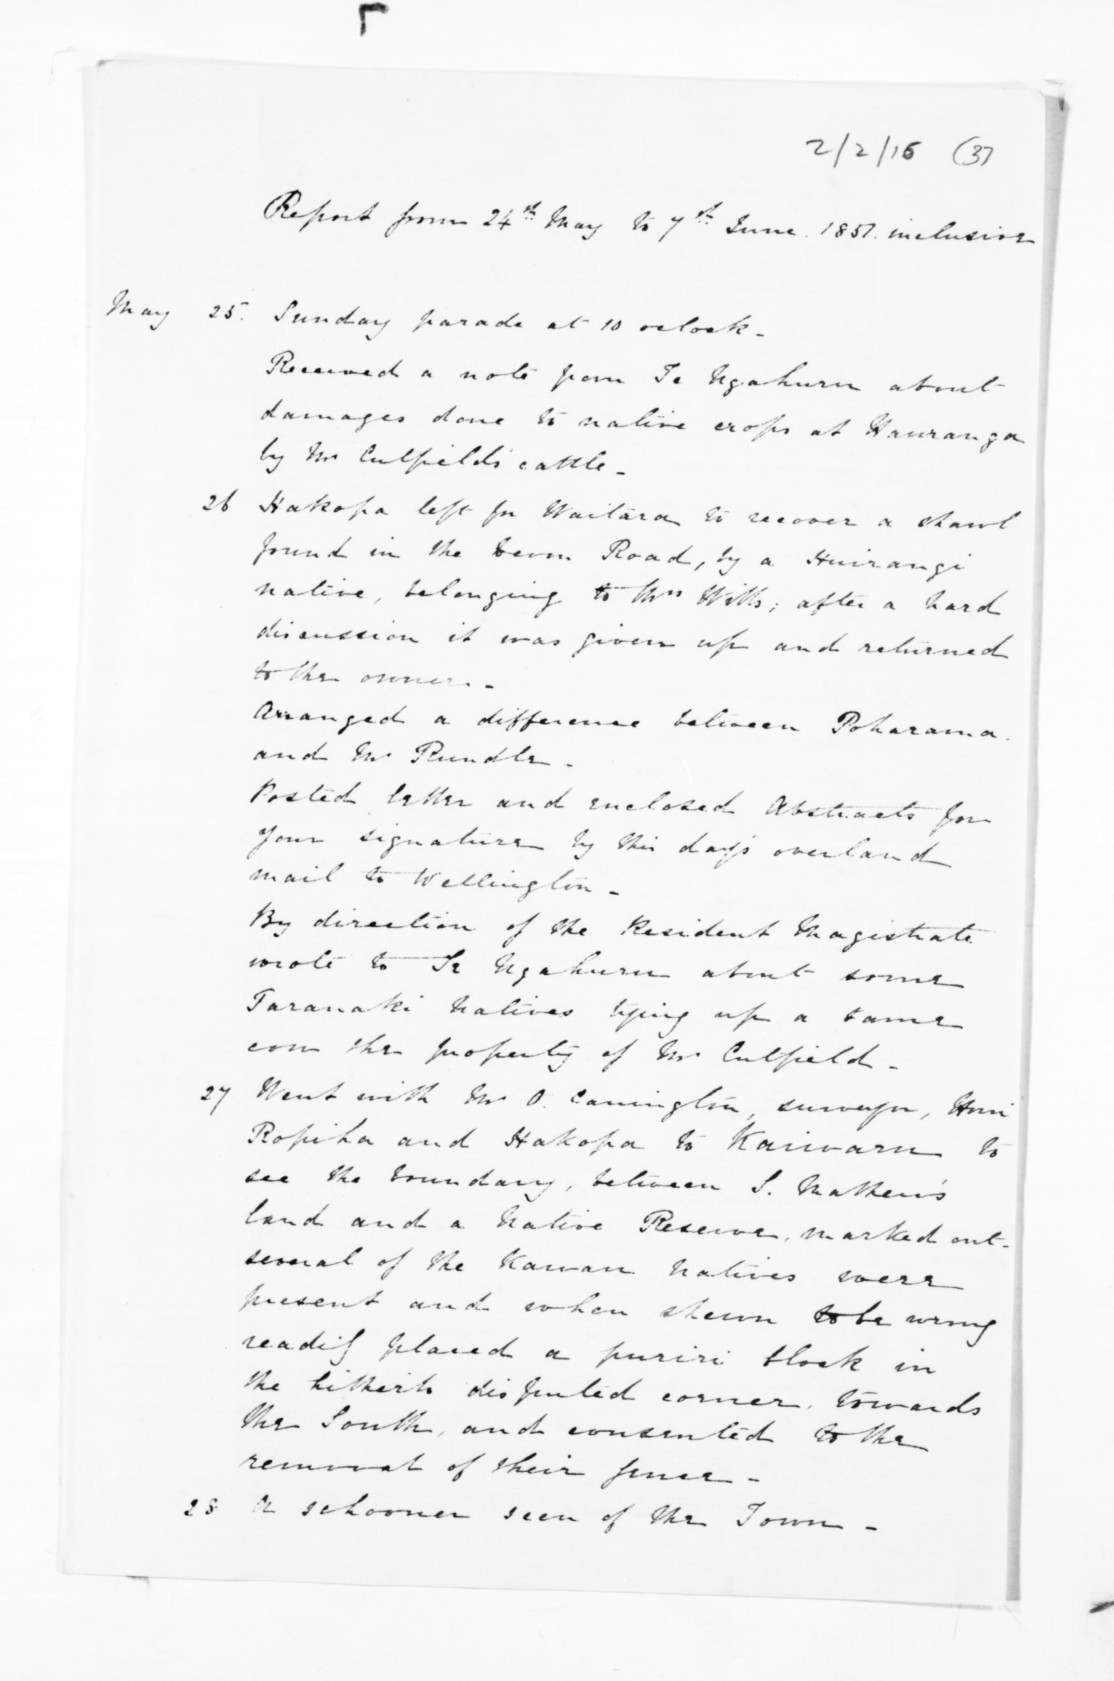 2/2/16 (3)
Report from 24th May to 7th June. 1851. inclusive
May 25. Sunday parade at 10 oclock -
Received a note from Te Ngahuru about
damages done to native crops at Hauranga
by Mr Cutfield's cattle -
26 Hakopa left for Waitara to recover a shawl
found in the Devon Road, by a Huirangi
native, belonging to Mrs Wills; after a hard
discussion it was given up and returned
to the owner. -
Arranged a difference between Poharama.
and Mr Rundle -
Posted letter and enclosed Abstracts for
your signature by this day's overland
mail to Wellington -
By direction of the Resident Magistrate
wrote to Te Ngahuru about some
Taranaki Natives tying up a tame
cow the property of Mr Cutfield -
27 Went with Mr O. Carrington, surveyor, Honi
Ropiha and Hakopa to Kaiwaru to
see the boundary, between S. Mathew's
land and a Native Reserve, marked out -
several of the Kawau Natives were
present and when shewn to be wrong
readily placed a puriri block in
the hitherto disputed corner, towards
the South, and consented to the
removal of their fence -
28 A schooner seen of the Town -